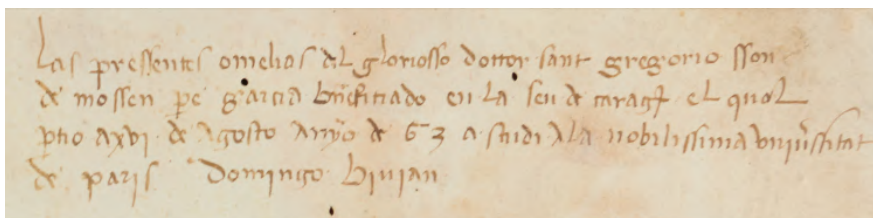 Las pressentes omelias del gloriosso dottor sant gregorio sson
de mossen pe garcia bnefitiado en la seu de carag̃ el qual
ptio a xvi de agosto anyo de 63 a studi a la nobilissima uniṽsitat
de paris Domingo bivian